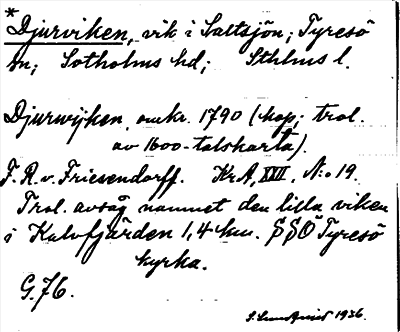 * Djurviken, vik i Saltsjön; Tyresö
sn; Sotholms hd; Sthlms l.
Djurwijken omkr. 1790 (kop; trol.
av 1600-talskarta).
F. R. v. Friesendorff. KrA, XXII, N:o 19.
Trol. avsåg namnet den lilla viken
i Kalvfjärden 1,4 km. SSÖ Tyresö
kyrka.
G.76.
1936.